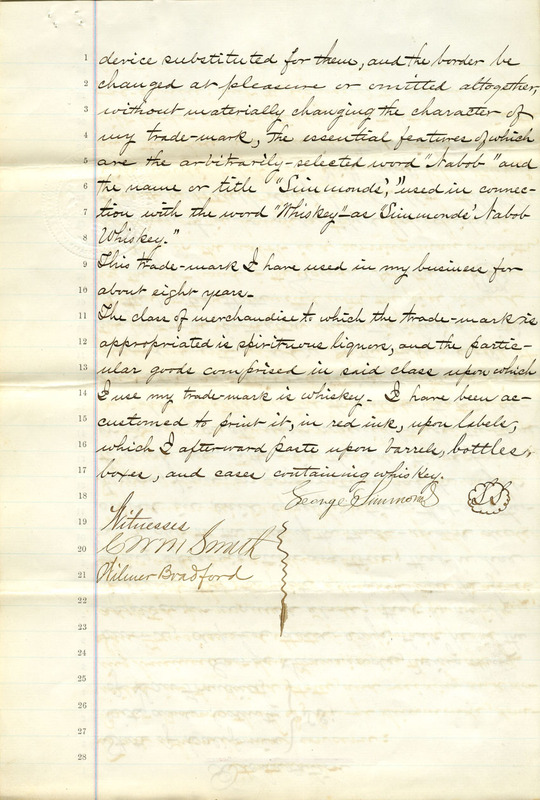 1 device substituted for them, and the border be
2 changed at pleasure or omitted altogether,
3 without materially changing the character of
4 my trade-mark, the essential features of which
5 are the arbitrarily-selected word "Nabob" and
6 the name or title "Simmonds'," used in connec-
7 tion with the word "Whiskey" as "Simmonds' Nabob
8 Whiskey."
9 This trade-mark I have used in my business for
10 about eight years.
11 The class of merchandise to which the trade-mark is
12 appropriated is spirituous liquors, and the partic-
13 ular goods comprised in said class upon which
14 I use my trade-mark is whiskey. I have been ac-
15 customed to print it, in red ink, upon labels,
16 which I afterward paste upon barrels, bottles,
17 boxes, and cases containing whiskey.
18 George Simmonds
19 Witnesses
20 Smith
21 Wilmer Bradford
22
23
24
25
26
27
28